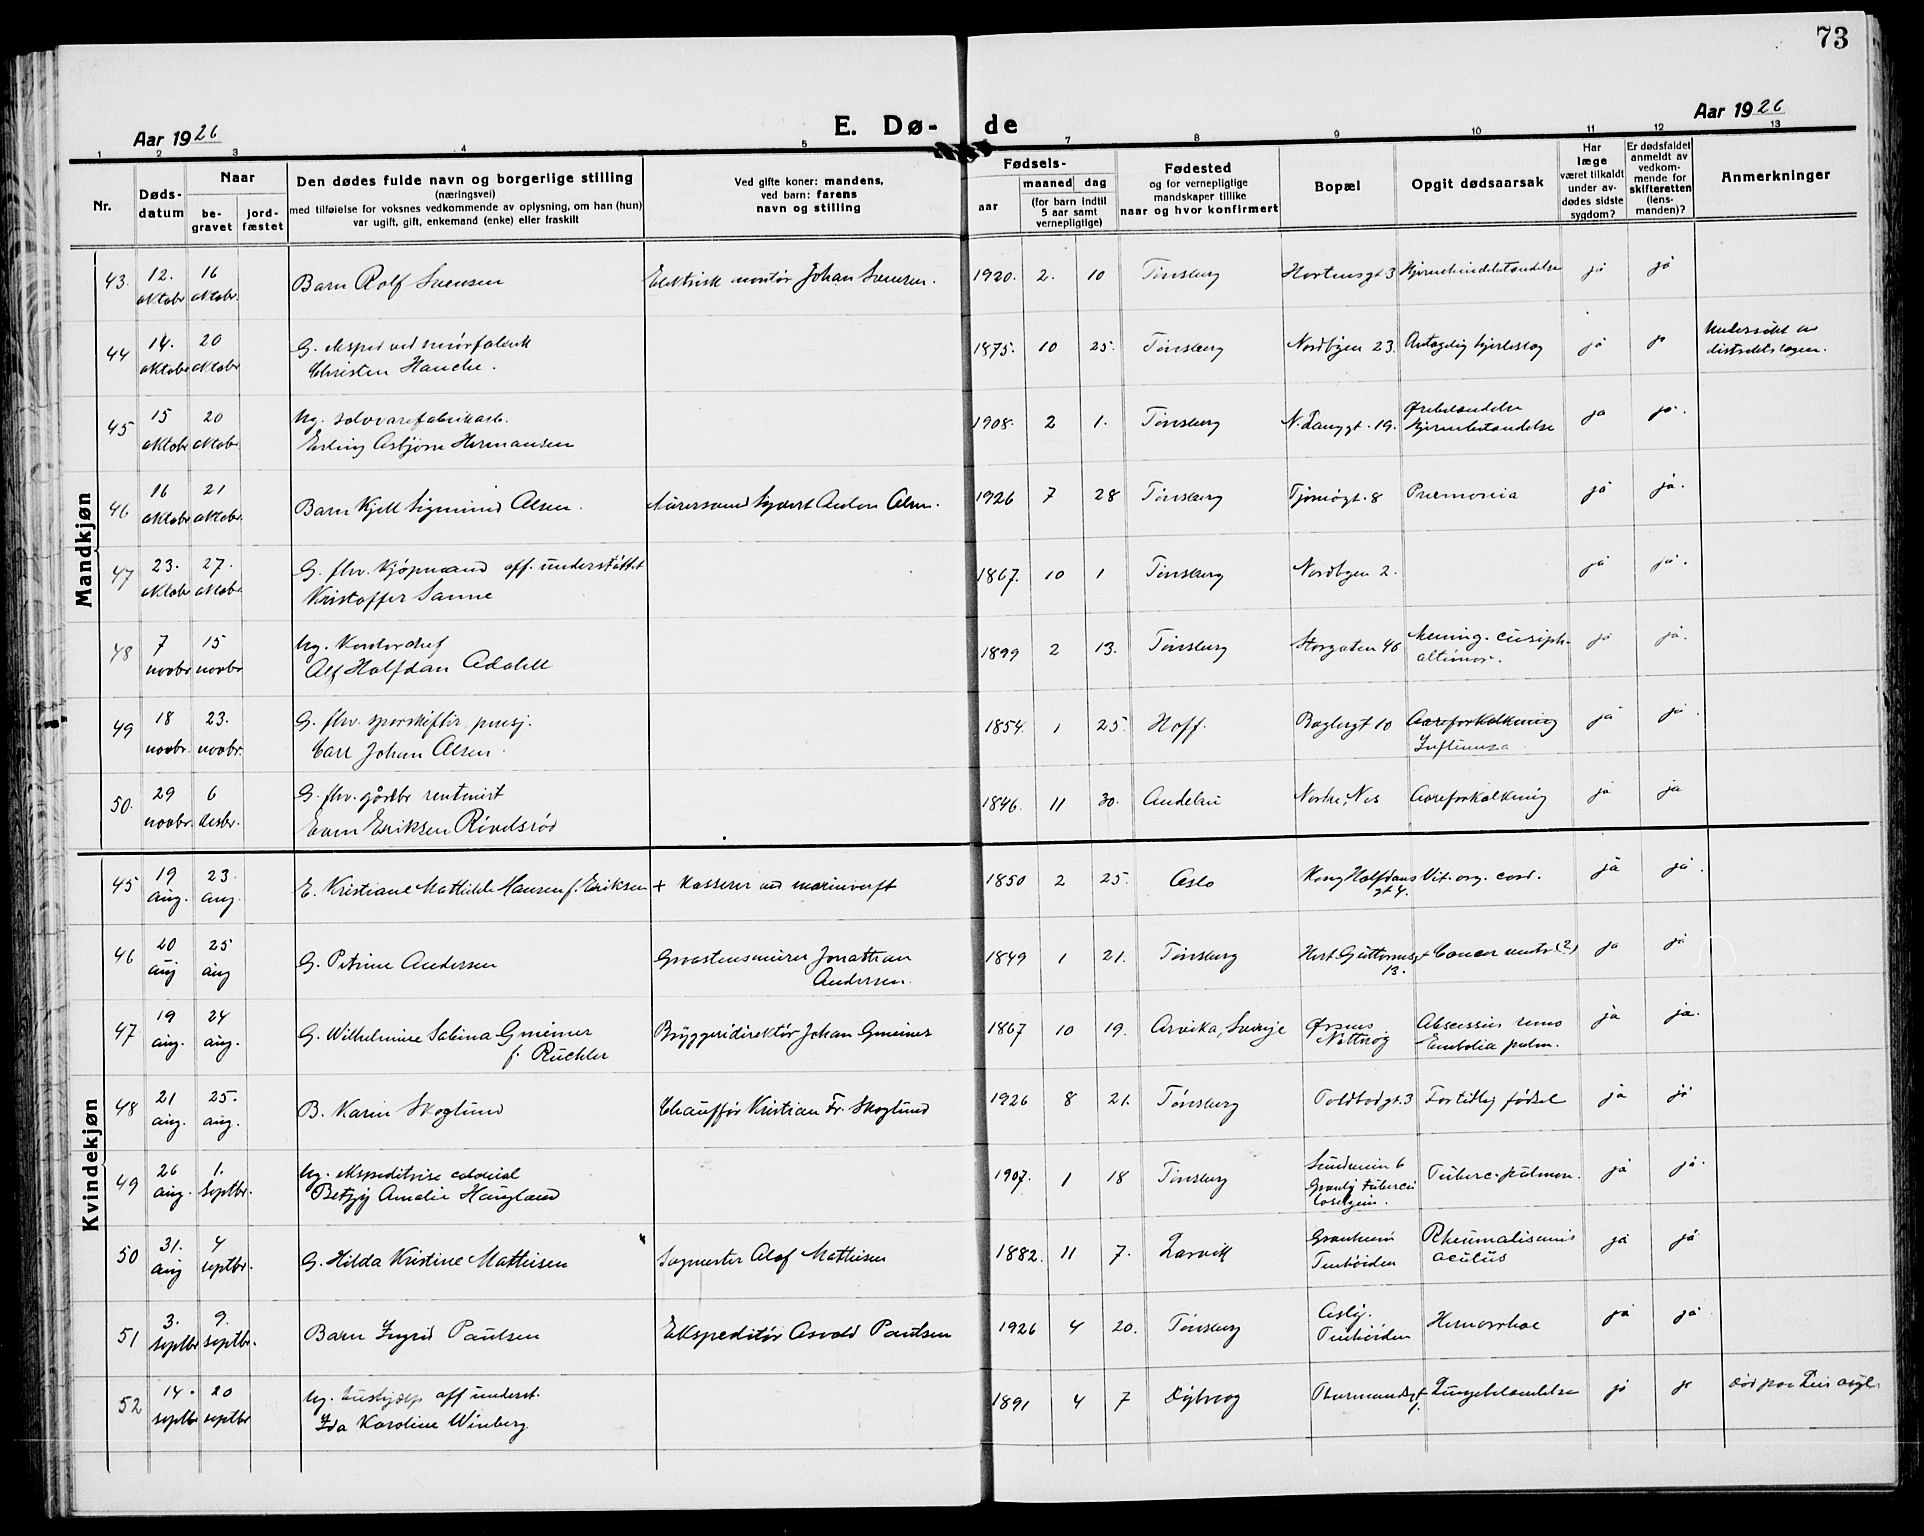 73
Aar 1926
E. Dø- de
Aar 1926
1 2 3 4 5 7 8 9 10 11 12 13
Nr.
Døds-
datum
Naar
be-
gravet
jord-
fæstet
Den dødes fulde navn og borgerlige stilling
(næringsvei)
med tilføielse for voksnes vedkommende av oplysning, om han (hun)
var ugift, gift, enkemand (enke) eller fraskilt
Ved gifte koner: mandens,
ved barn: farens
navn og stilling
Fødsels-
aar
maaned dag
(for barn indtil
5 aar samt
vernepligtige)
Fødested
og for vernepligtige
mandskaper tillike
naar og hvor konfirmert
Bopæl
Opgit dødsaarsak
Har
læge
været tilkaldt
under av-
dødes sidste
sygdom?
Er dødsfaldet
anmeldt av
vedkom-
mende for
skifteretten
(lens-
manden)?
Anmerkninger
Mandkjøn
43. 12. oktobr 16 oktobr. Barn Rolf Svensen Elektrisk montør Johan Svensen. 1920. 2. 10 Tønsberg Hortensgt 3 Hjernehindebetændelse ja ja
44 14. oktobr 20 oktobr G. eksped ved smørfabrik
Christen Hauche. 1875. 10 25. Tønsberg Nordbyen 23. Antagelig hjerteslag ja ja Undersøkt av
distriktslægen.
45 15 oktobr 20 oktobr Ug. sølvvarefabrikarb.
Erling Asbjørn Hermansen 1908. 2 1. Tønsberg N. Langgt. 19. Ørebetændelse
Hjernebetændelse ja ja.
46 16 oktobr 21 oktobr. Barn Kjell Sigmund Olsen. Murersvend Sigvart Anton Olsen. 1926 7 28 Tønsberg Tjømøgt. 8 Pnevmonia ja ja.
47 23. oktobr 27. oktobr G. fhv. kjøpmand off. understøttet
Kristoffer Sanne 1867. 10 1 Tønsberg Nordbyen 2. ja ja.
48 7 novbr 15 novbr Ug. Kontorchef
Alf Halfdan Adolell 1899 2 13. Tønsberg Storgaten 46 Mening. ja ja.
49 18 novbr. 23. novbr. G. fhv. sporskifter, pensj.
Carl Johan Olsen. 1854. 1 25. Hoff. Baglergt 10 Aareforkalkning
Influensa ja ja.
50. 29 novbr. 6 desbr. G. fhv. gårdbr rentenist
Even Eriksen Rivelsrød 1846. 11 30. Andebu Nordre, Nes Aareforkalkning ja ja
Kvindekjøn
45 19 aug. 23. aug. E. Kristiane Mathilde Hansen f. Eriksen + kasserer ved marineverft 1850 2 25. Oslo Kong Halfdans
gt 4. Vit. org. cord. ja ja.
46 20 aug 25 aug G. Petrine Andersen Graastensmurer Jonathan
Andersen. 1849 1 21. Tønsberg Hert. Guttormsgt
13. Cancer uteri (?) ja ja
47 19 aug. 24 aug. G. Wilhelmine Sabina Gmeiner
f. Ruchler Bryggeridirektør Johan Gmeiner 1867 10 19. Arvika, Sverige Ørsnes
Nøtterøy Abscessus renis
Embolia pulm. ja ja.
48 21 aug. 25. aug. B. Karin Skoglund Chauffør Kristian Fr. Skoglund 1926 8 21. Tønsberg Toldbodgt. 3 For tidlig fødsel ja ja
49 26 aug. 1. septbr. Ug. ekspeditrise colonial
Betzy Amalie Haugland 1907. 1 18 Tønsberg 6
Granly tubercu
losehjem. Tuberc. pulmon. ja ja.
50 31. aug 4 septbr. G. Hilda Kristine Mathisen Sagmester Olaf Mathisen 1882. 11 7. Larvik Granheim
Teiehøiden Rheumatismus
acutus ja ja
51 3. septbr 9. septbr. Barn Ingrid Paulsen Ekspeditør Osvald Paulsen 1926 4 20. Tønsberg Teiehøiden Hemorrhoe ja ja
52 14. septbr 20 septbr Ug. hushjelp off underst.
Ida Karoline Winberg 1891 4 7 Dybvåg Lungebetændelse ja ja død paa asyl.